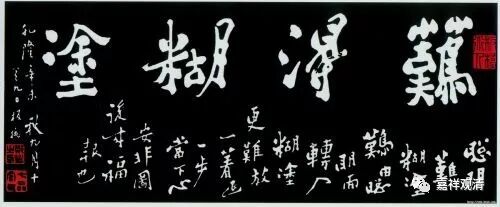 難得糊塗
聰明
難
糊塗
難由聰
明而
轉入
糊塗
更難放
一著退
一步
當下心
安非圖
後來福
報也
乾隆辛未秋九月十
有九日板橋
嘉祥观清